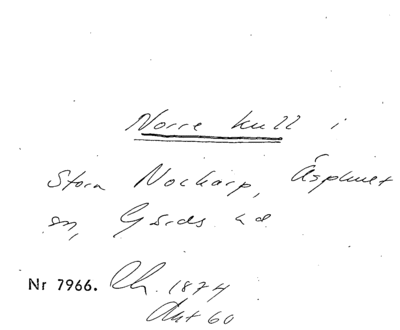 Norre kull i
Stora Nockarp, Äsphult
sn, Gärds hd
Nr 7966. Ch. 1874
Akt 60